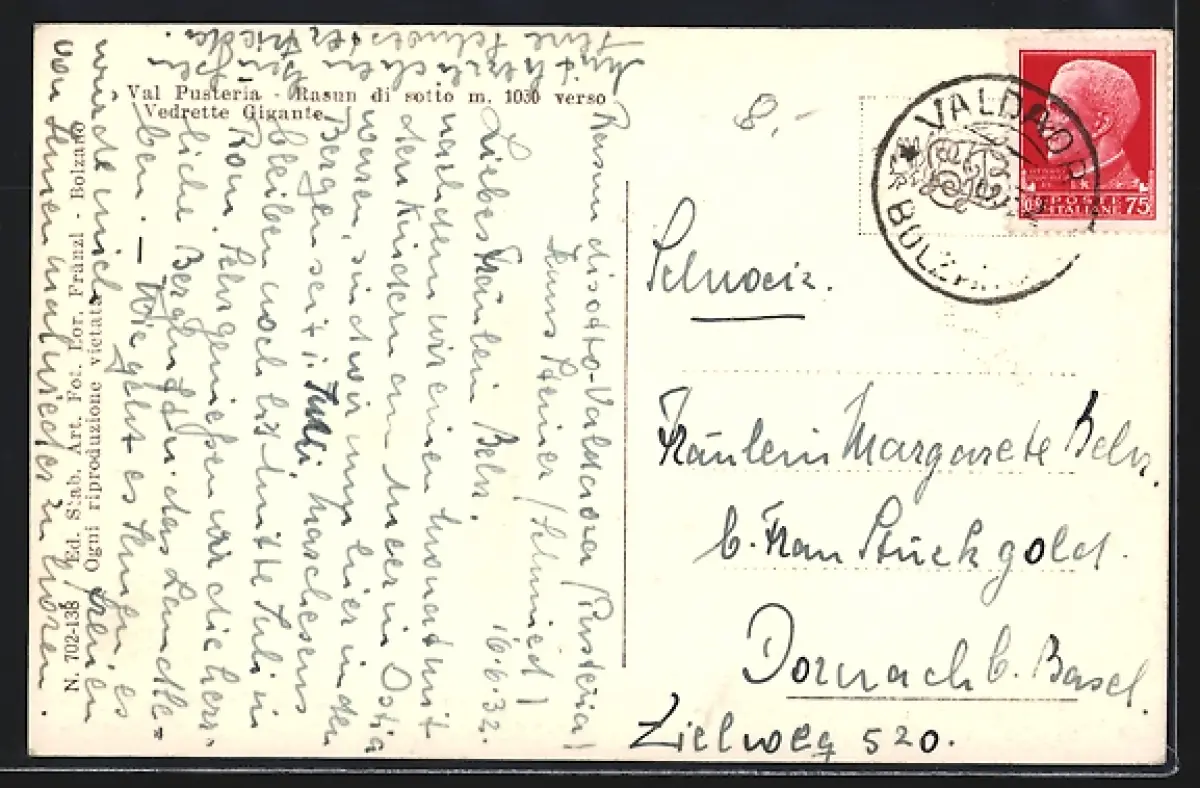 Val Pusteria - Rasun di sotto m. 1030 verso
Vedrette Gigante
N. 702-138 Ed. Stab. Art. Fot. Lor. Fränzl - Bolzano
Ogni riproduzione vietata
8.-
VALDAORA
BOLZANO
POSTE
ITALIANE 75
Schweiz.
Fräulein Margarete Behr.
b. Frau Stückgold.
Dornach b. Basel.
Zielweg 520.
Rasun di sotto-Valdaora/Pusteria/
Haus Steiner /Schmied/
16.6.32.
Liebes Fräulein Behr.
nachdem wir einen Monat mit
den Kindern am Meer in Ostia
waren, sind wir nun hier in den
Bergen seit 1. Juli,
bleiben noch bis Mitte Juli in
Rom. Sehr genießen wir die herr-
liche Bergluft, das Landle-
ben. — Wie geht es Ihnen, es
würde mich freuen
von Ihnen mal wieder zu hören.
Mit herzlichen